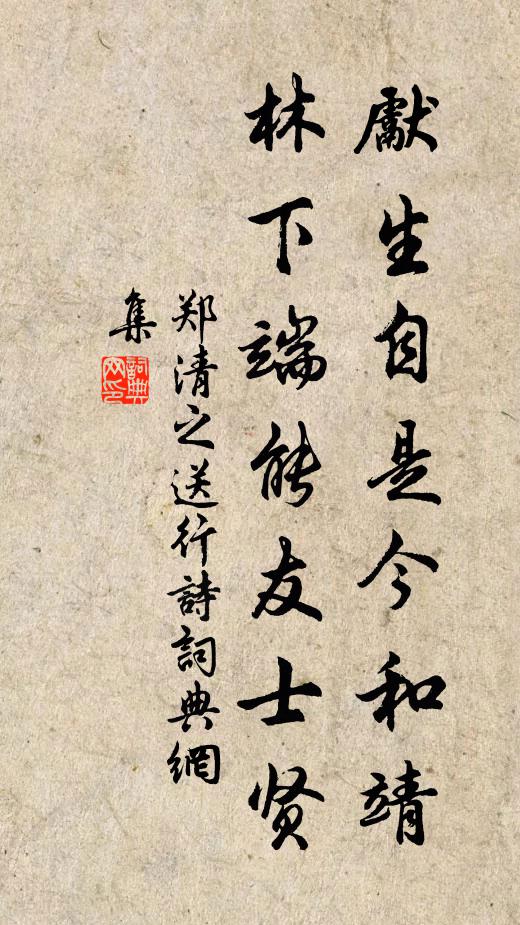 獻生自是今和靖
林下端能友士贤
郑清之送行詩詞典網
集
詞典
网印